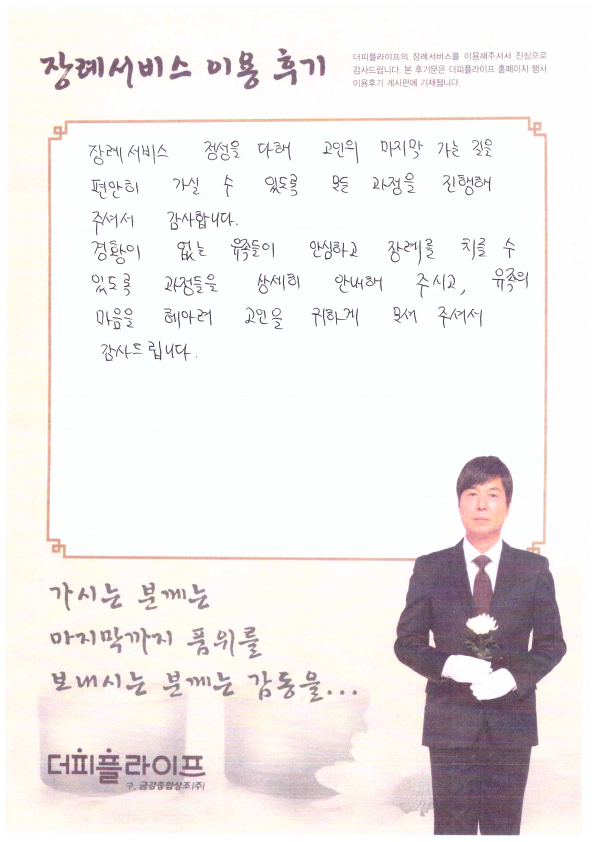 장례서비스 이용 후기
더피플라이프의 장례서비스를 이용해주셔서 진심으로
감사드립니다. 본 후기문은 더피플라이프 홈페이지 행사
이용후기 게시판에 기재됩니다.
장례서비스 정성을 다해 고인의 마지막 가는 길을
편안히 가실 수 있도록 모든 과정을 진행해
주셔서 감사합니다.
경황이 없는 유족들이 안심하고 장례를 치를 수
있도록 과정들을 상세히 안내해 주시고, 유족의
마음을 헤아려 고인을 귀하게 모셔 주셔서
감사드립니다.
가시는 분께는
마지막까지 품위를
보내시는 분께는 감동을...
더피플라이프
구. 금강종합상조(주)